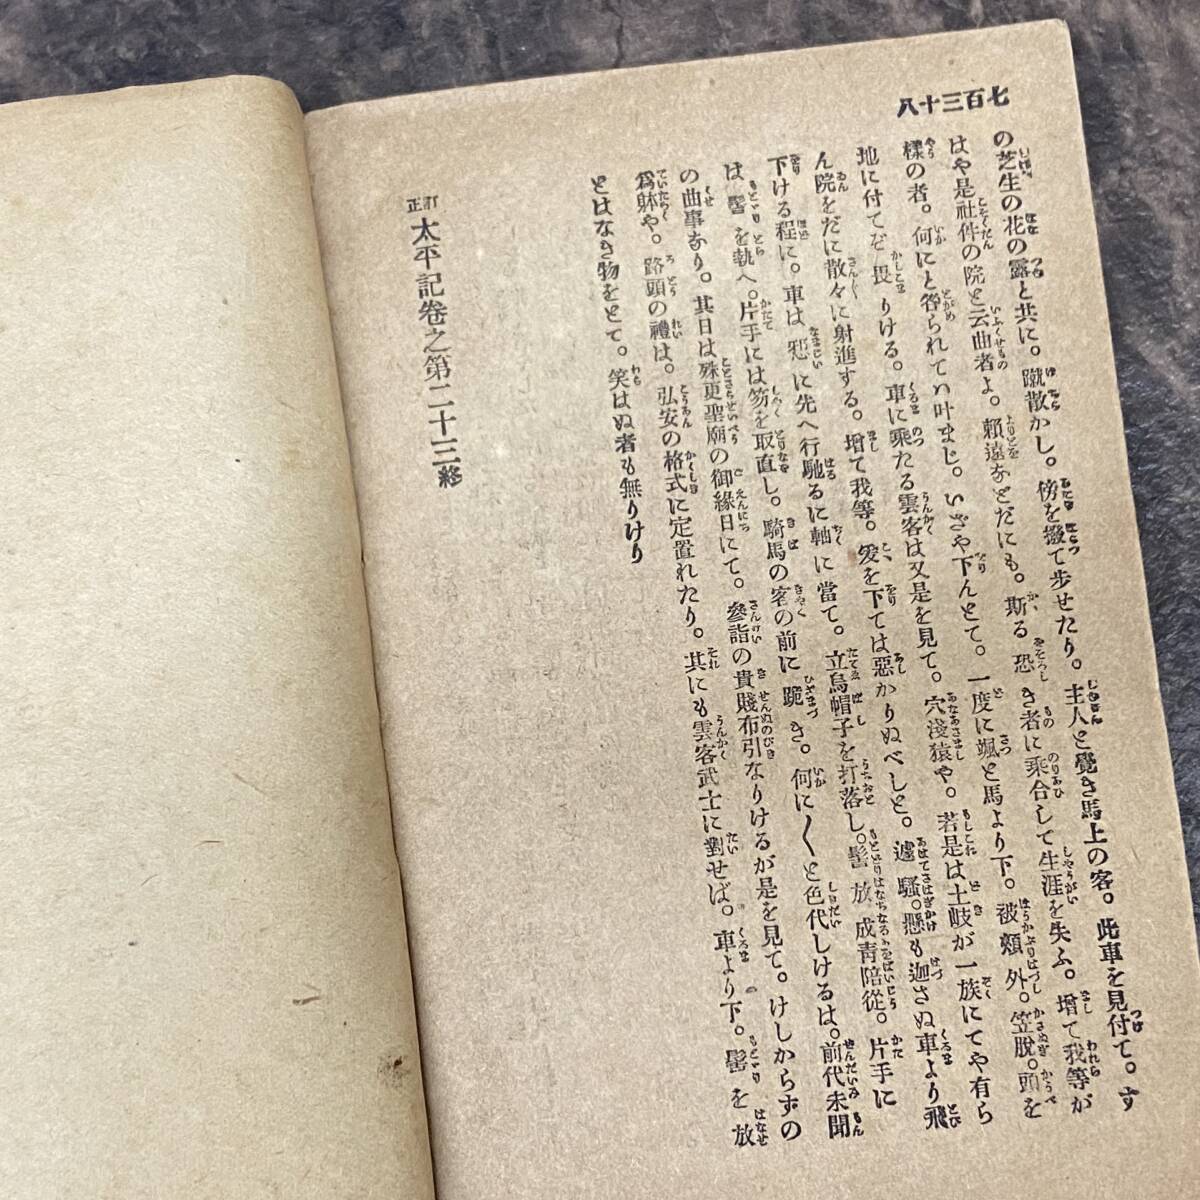 七百三十八
の芝生の花の露と共に。蹴散かし。傍を撥て歩せたり。主人と覺き馬上の客。此車を見付て。す
はや是社件の院と云曲者よ。賴遠なとだにも。斯る恐き者に乘合して生涯を失ふ。增て我等が
樣の者。何にと咎られてハ叶まじ。いざや下んとて。一度に颯と馬より下。被頰外。笠脫。頭を
地に付てぞ畏りける。車に乘たる雲客は又是を見て。穴淺猿や。若是は土岐が一族にてや有ら
ん院をだに散々に射進する。增て我等。爰を下ては惡かりぬべしと。遽騷。懸も迦さぬ車より飛
下ける程に。車は邪に先へ行馳るに軸に當て。立烏帽子を打落し。髻放成靑陪從。片手に
は髻を執へ。片手には笏を取直し。騎馬の客の前に跪き。何に〳〵と色代しけるは。前代未聞
の曲事なり。其日は殊更聖廟の御緣日にて。參詣の貴賤布引なりけるが是を見て。けしからずの
爲躰や。路頭の禮は。弘安の格式に定置れたり。其にも雲客武士に對せば。車より下。髻を放
とはなき物をとて。笑はぬ者も無りけり
訂正 太平記卷之第二十三終